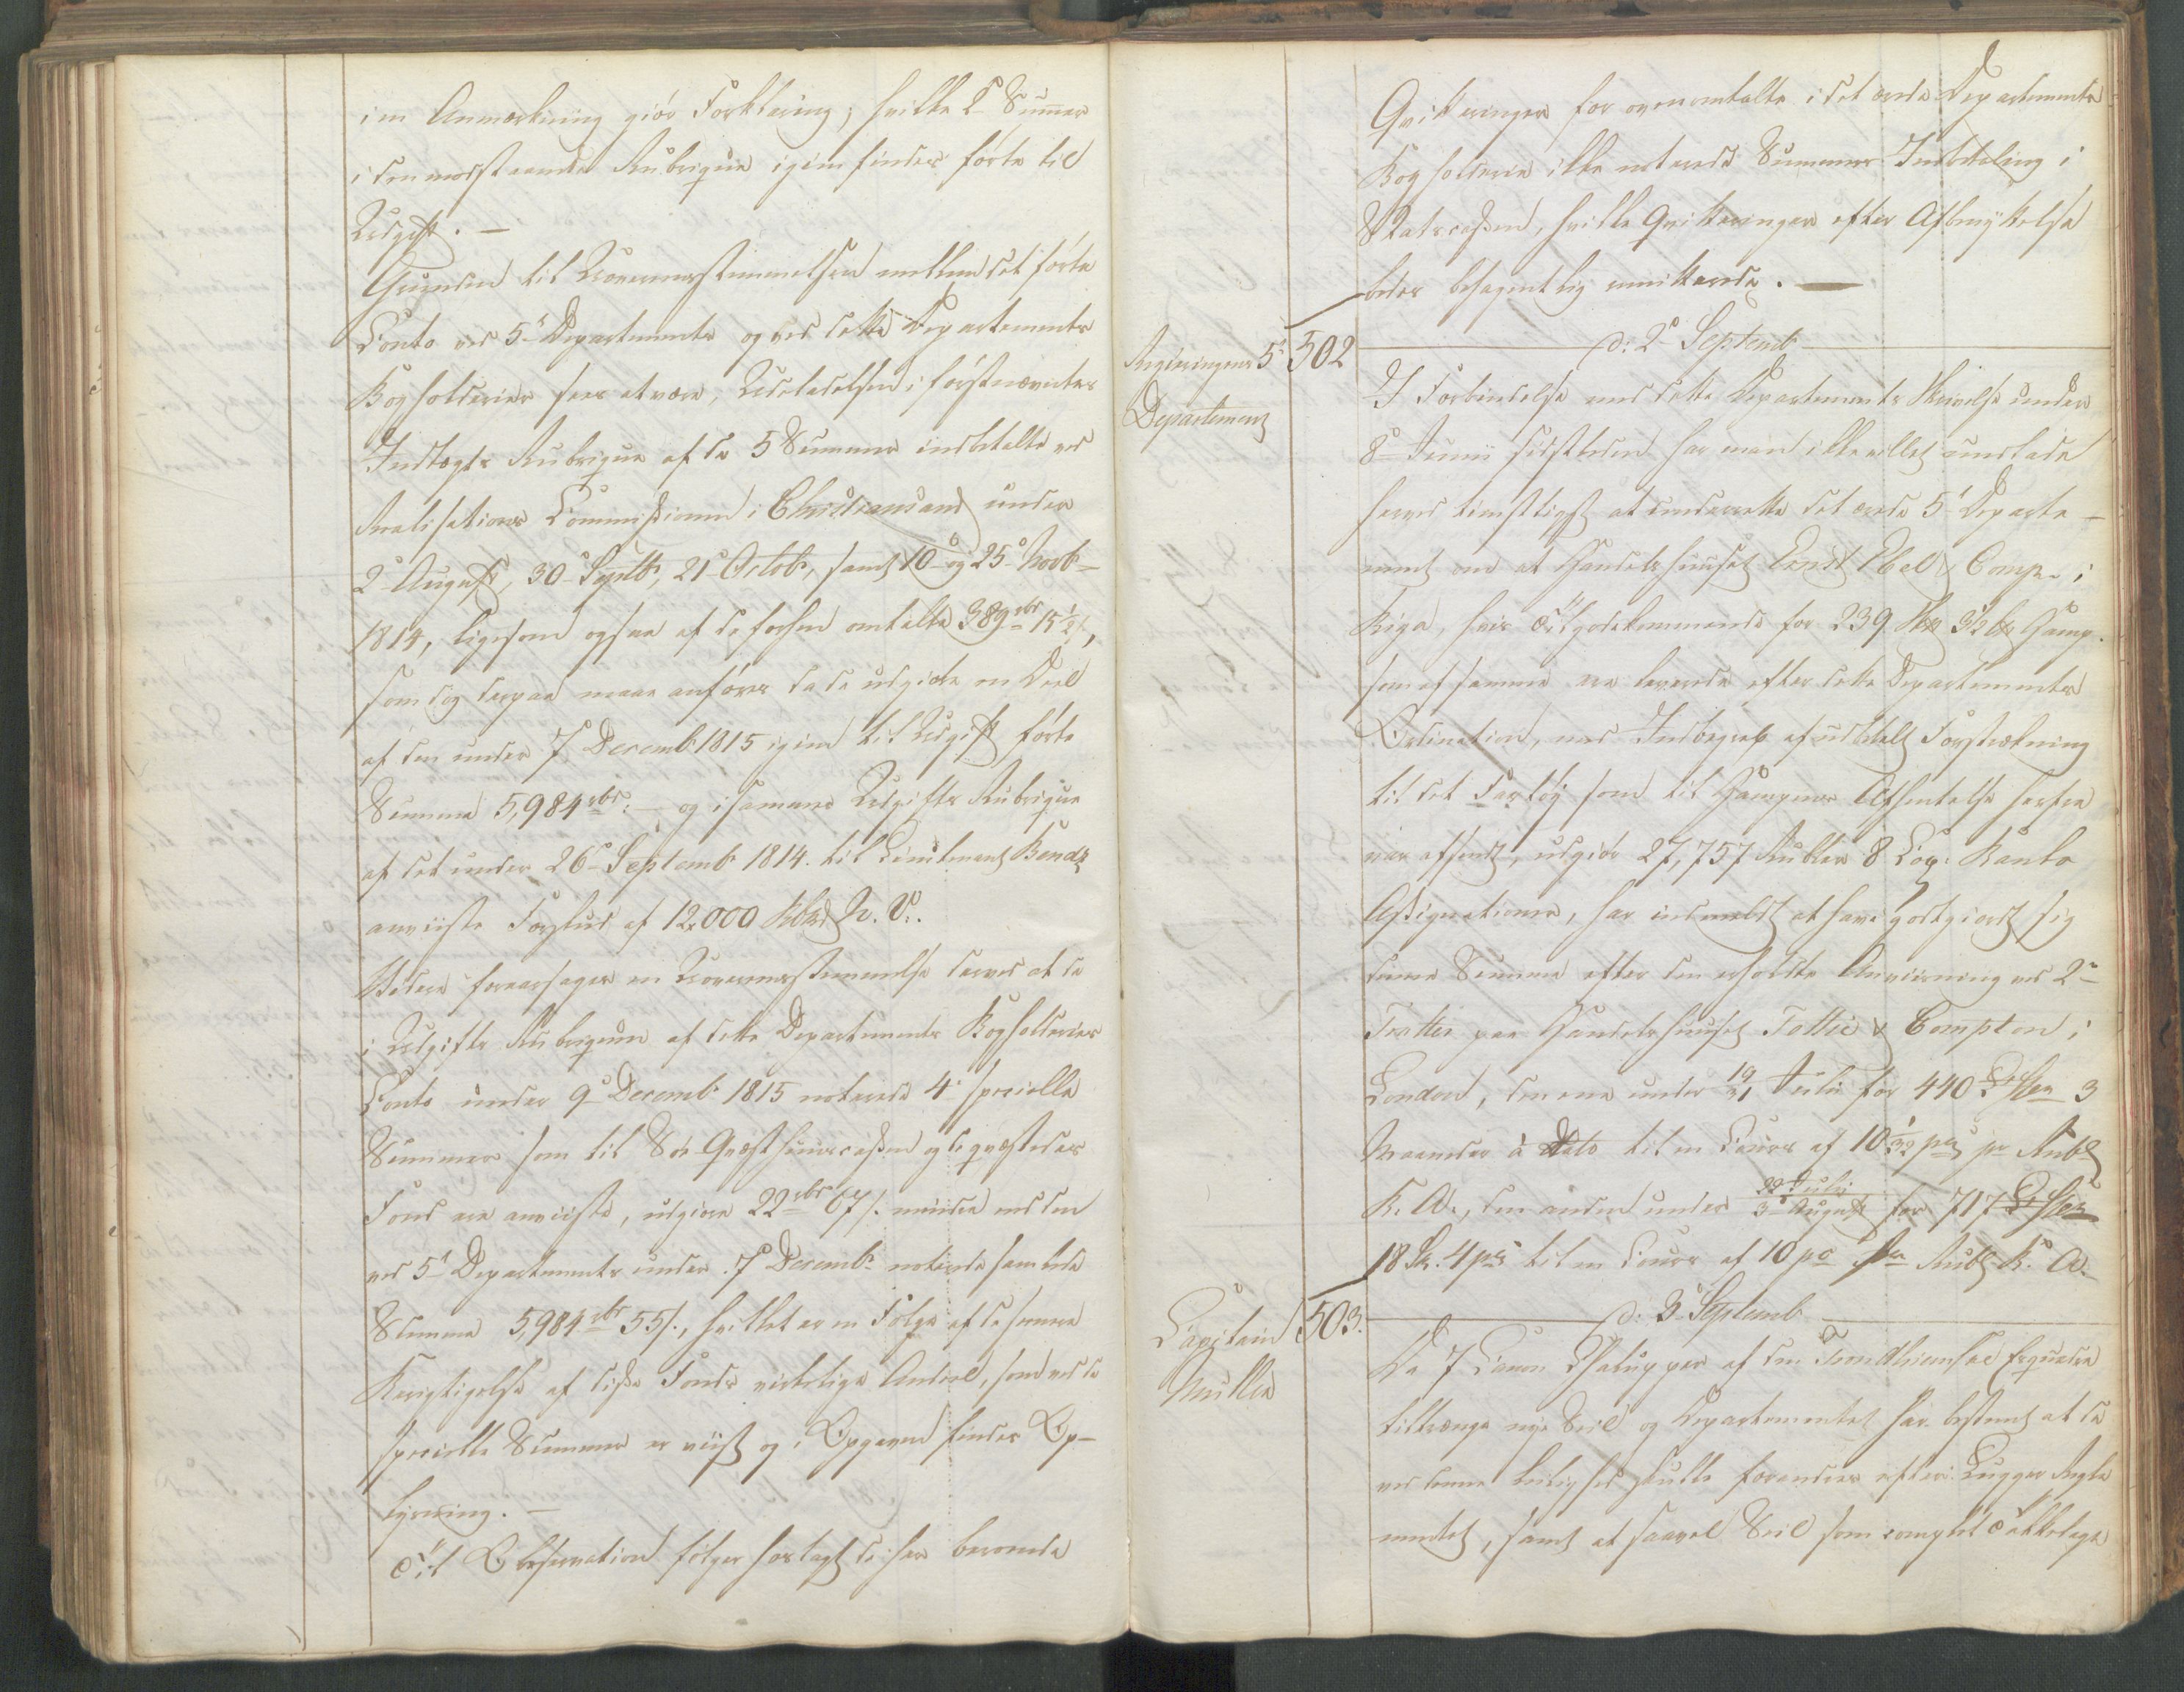 im Anmærkning giør Forklaring; hvilke 2 Summer
i den modstaaende Rubrique igien findes førte til
Udgift. —
Grunden til Uovereensstemmelsen mellem det førte
Conto ved 5te Departements og ved dette Departements
Bogholderier sees at være, Udeladelsen i førstnævntes
Indtægts Rubrique af de 5 Summer indbetalte ved
Realisations Commissionen i Christiansand under
2den August, 30 Septbr, 21 Octobr, samt 10de og 25de Novbr
1814, ligesom ogsaa af de forhen omtalte 389 rbd 15½ s,
som dog derpaa maae anføres da de udgiøre en Deel
af den under 7de Decembr 1815 igien til Udgift førte
Summa 5,984 rbd: — og i samme Udgifts Rubrique
af det under 26de Septembr 1814 til Lieutenant Bendz
anviiste Forskud af 12,000 Rbd N. V.
Videre foraarsages en Uovereensstemmelse derved at de
i Udgifts Rubriquen af dette Departements Bogholderies
Conto under 9de Decembr 1815 noterede 4 specielle
Summer som til Søe Qvæsthuuscassen og de qvæstedes
Fond ere anviiste, udgiøre 22 rbd 67 s. mindre end den
ved 5te Departements under 7de Decembr noterede samlede
Summa 5,984 rbd 55 s., hvilket er en Følge af de senere
Berigtigelse af disse Fonds virkelige Andeel, som ved de
specielle Summer er viist og i Opgaven findes Op-
lysning. —
Til Observation følger hoslagt de her beroende
Qvitteringer for ovenomtalte i det ærede Departements
Bogholderie ikke noterede Summers Indbetaling i
Statscassen, hvilke Qvitteringer efter Afbenyttelse
bedes behageligen remitterede. —
Regieringens 5te Departement
502
d: 2 Septemb
I Forbindelse med dette Departements Skrivelse under
8de Junii sidstleden har man ikke villet undlade
herved tienstligst at underrette det ærede 5te Departe-
ment om at Handelshuuset Ernst Ebel & Comp. i
Riga, hvis Tilgodekommende for 239 Skp 3½ Lp Hamp.
som af samme ere leverede efter dette Departements
Ordination, med Indbegreb af udbetalt Forstrækning
til det Fartøy som til Hampens Afhentelse herfra
var afsendt, udgiør 27,757 Rubler 8 Cop: Banko
Assignationer, har indmeldt at have godtgiordt sig
denne Summa efter den erholdte Anviisning ved 2de
Tratter paa Handelshuuset Tottie & Compton i
London, den ene under 19/31 Julii for 440 £ Ster 3
Maaneder à Dato til en Cours af 10 1/32 pce pr Rubl
B. A., den anden under 22 Julii/3 August for 717 £ Ster
18 Sh. 4 pce til en Cours af 10 pce pr Rubl B. A.
Capitain Müller
503.
d: 3 Septemb
De 7 Canon Chalupper af den Trondhiemske Esquadre
tiltrænge nye Seil og Departementet har bestemt at de
ved denne Leilighed skulle forandres efter Lugger Regle
mentet, samt at saavel Seil som complet Takkelage